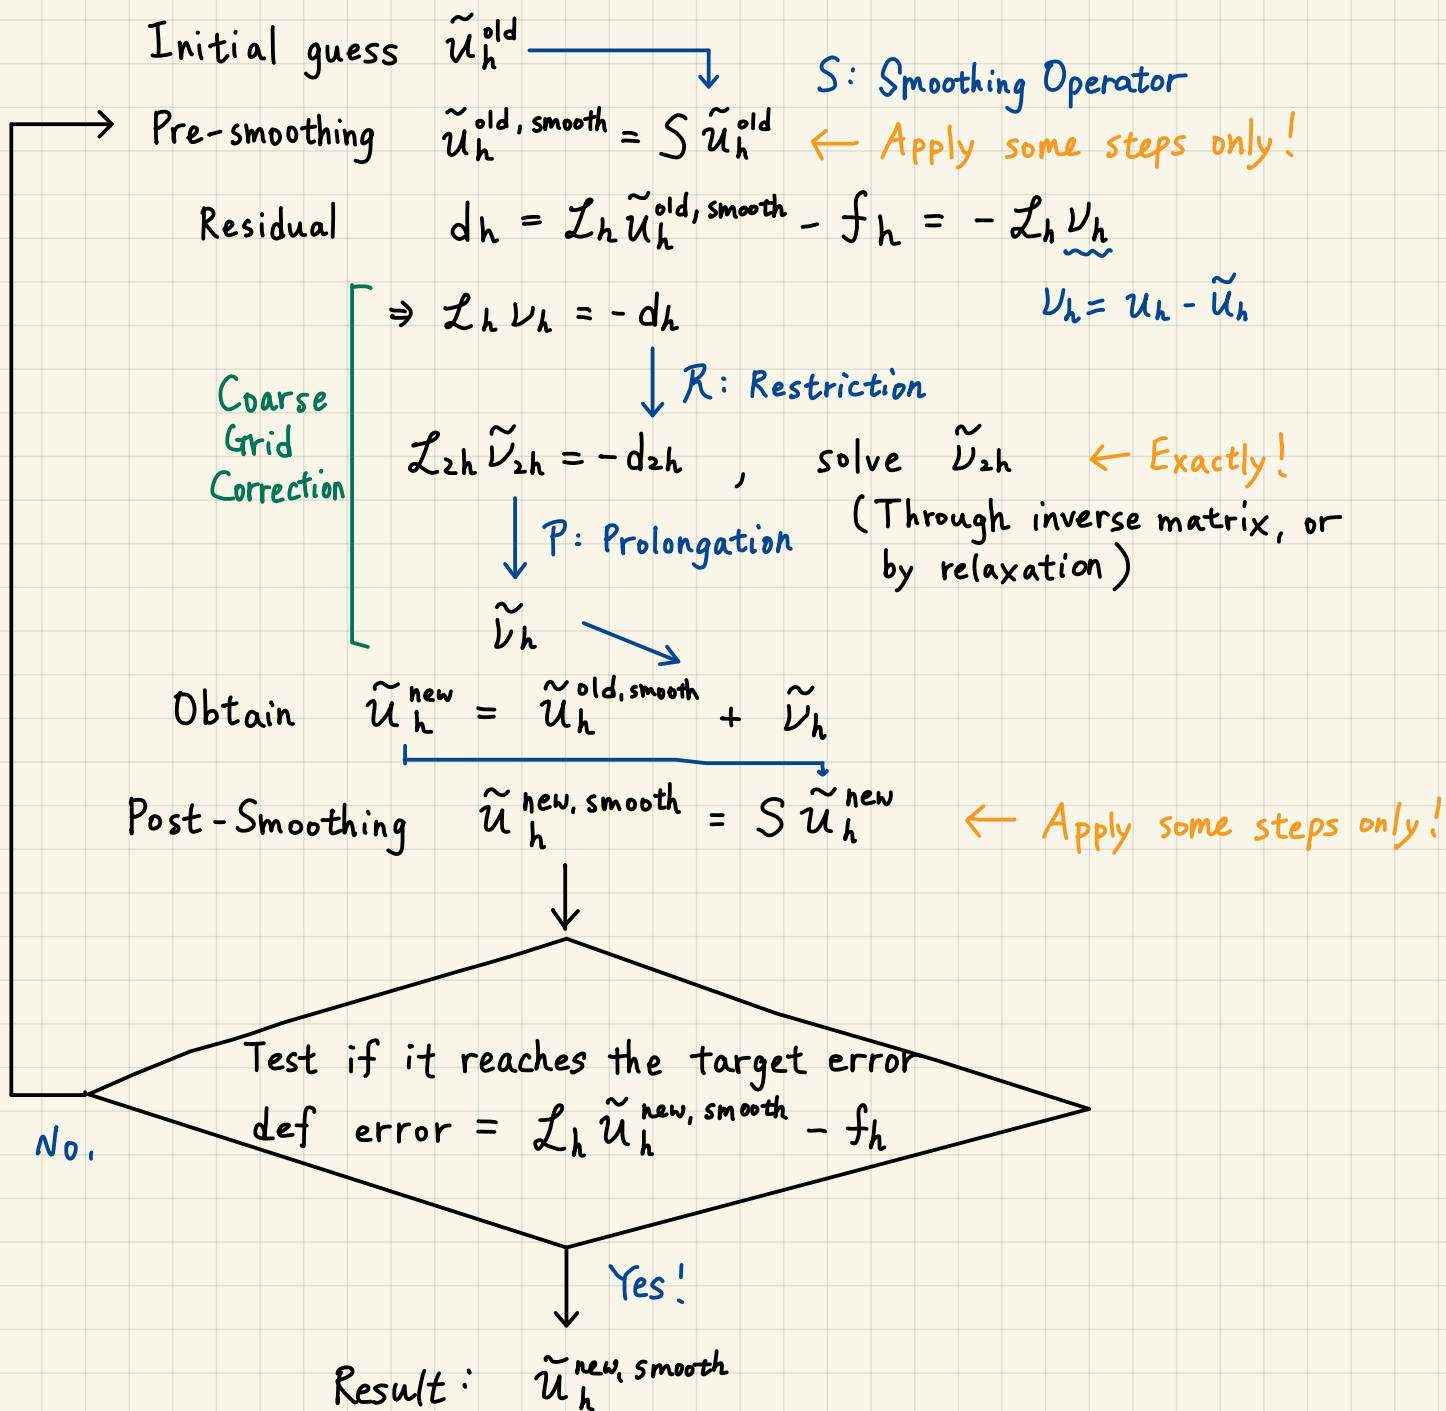 Initial guess ũ_h^old
S: Smoothing Operator
Pre-smoothing ũ_h^old, smooth = S ũ_h^old ← Apply some steps only!
Residual d_h = ℒ_h ũ_h^old, smooth - f_h = - ℒ_h ν_h
ν_h = u_h - ũ_h
⇒ ℒ_h ν_h = - d_h
R: Restriction
Coarse
Grid
Correction
ℒ_2h ν̃_2h = - d_2h , solve ν̃_2h ← Exactly!
(Through inverse matrix, or
by relaxation)
P: Prolongation
ν̃_h
Obtain ũ_h^new = ũ_h^old, smooth + ν̃_h
Post-Smoothing ũ_h^new, smooth = S ũ_h^new ← Apply some steps only!
Test if it reaches the target error
def error = ℒ_h ũ_h^new, smooth - f_h
No.
Yes!
Result: ũ_h^new, smooth